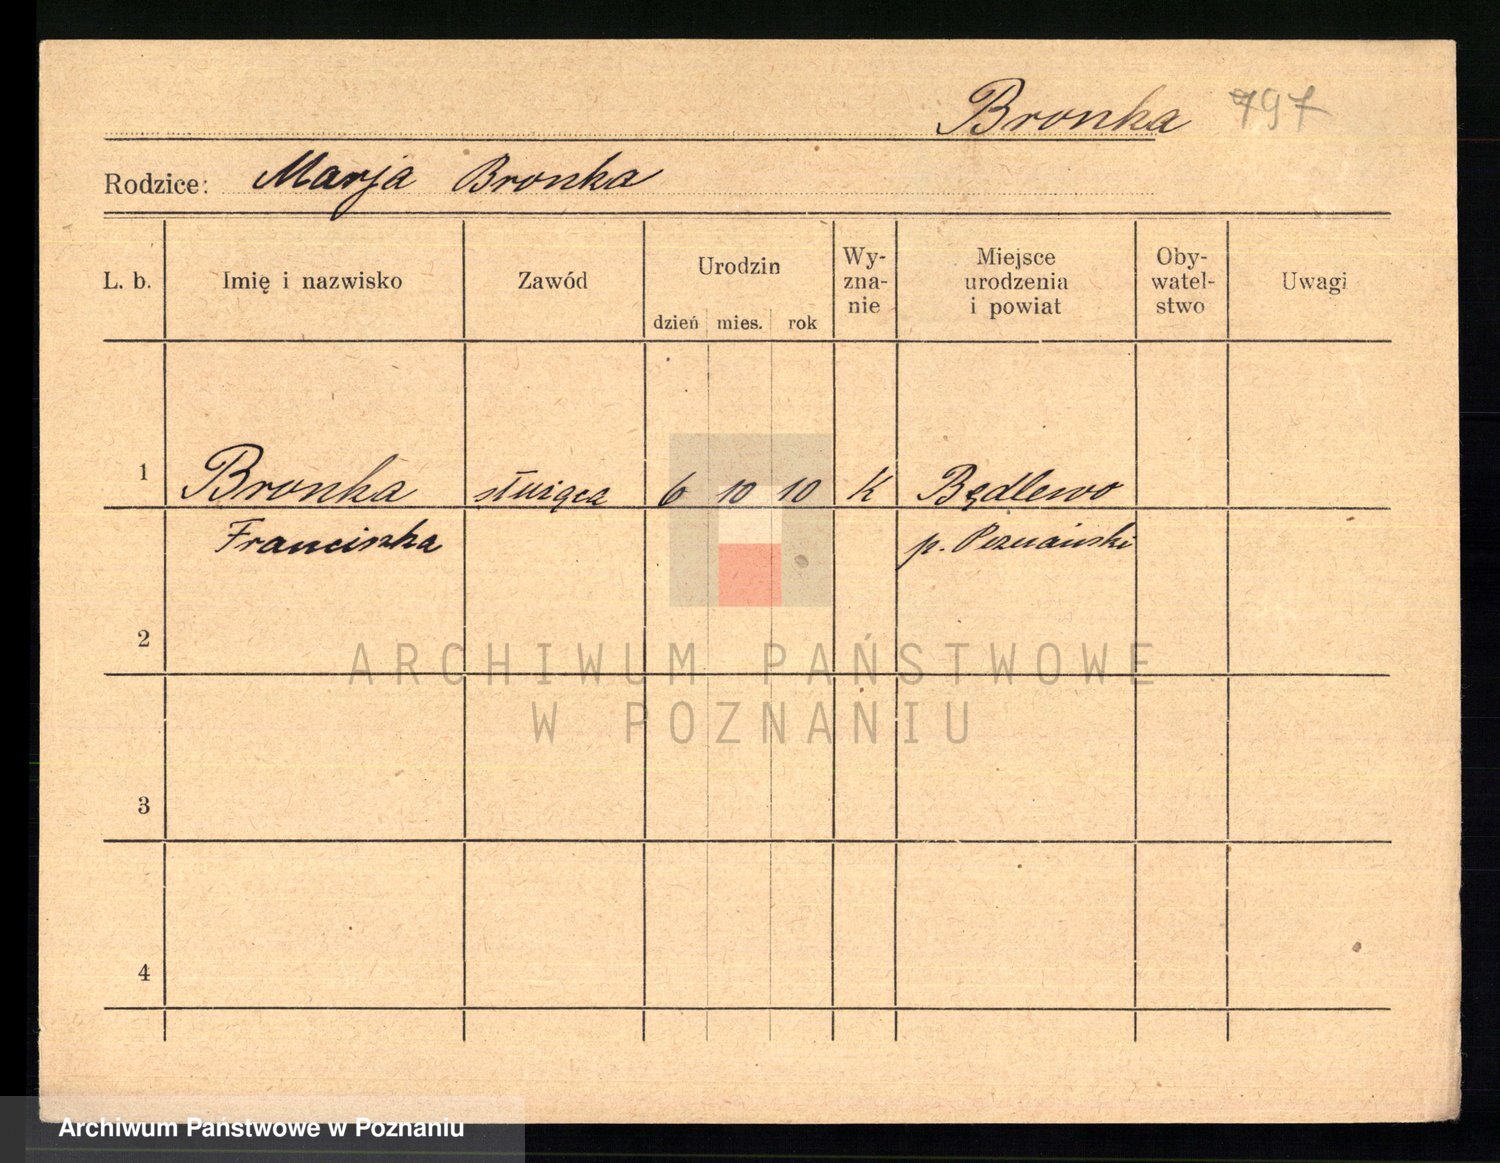 Bronka 797
Rodzice: Marja Bronka
L. b. Imię i nazwisko Zawód Urodzin dzień mies. rok Wy-zna-nie Miejsce urodzenia i powiat Oby-watel-stwo Uwagi
1 Bronka służąca 6 10 10 K Będlewo
Franciszka p. Poznański
2
ARCHIWUM PAŃSTWOWE
W POZNANIU
3
4
Archiwum Państwowe w Poznaniu